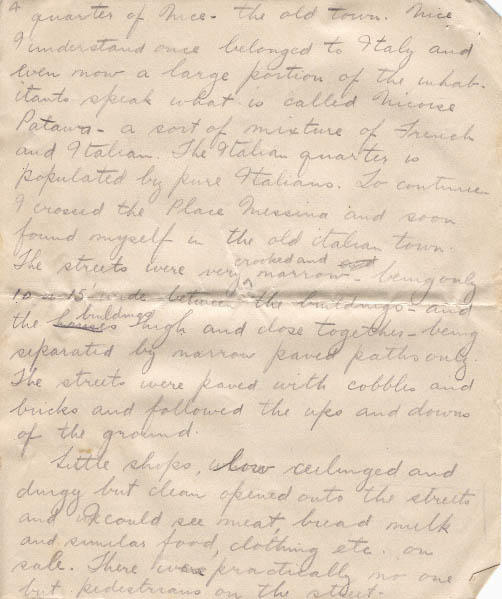 4
quarter of Nice - the old town. Nice
I understand once belonged to Italy and
even now a large portion of the inhab-
itants speak what is called Nicoise
Patawa - a sort of mixture of French
and Italian. The Italian quarter is
populated by pure Italians. To continue
I crossed the Place Messina and soon
found myself in the old italian town.
crooked and
The streets were very narrow - being only
10 - 15' wide between the buildings - and
buildings
the houses high and close together - being
separated by narrow paved paths only.
The streets were paved with cobbles and
bricks and followed the ups and downs
of the ground.
Little shops, low ceilinged and
dingy but clean opened onto the streets
and I could see meat, bread milk
and similar food, clothing etc. on
sale. There was practically no one
but pedestrians on the street.